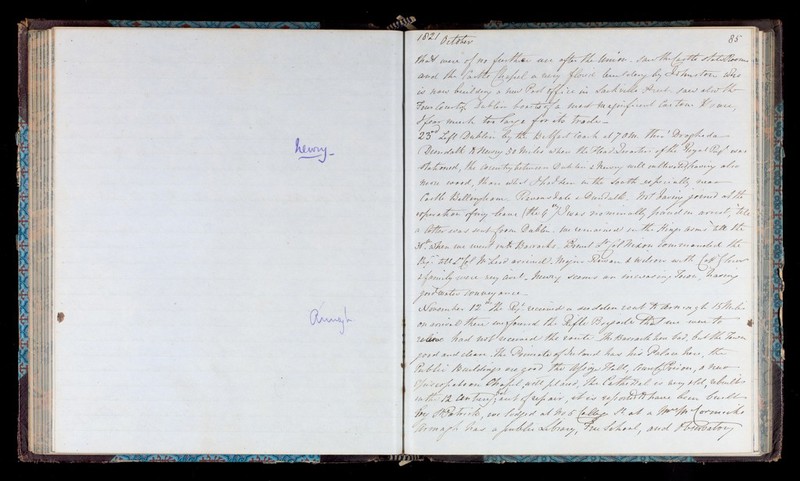 Newry_
Armagh
1821 October 85
that were of no further use after the Union. saw the Castle State Rooms
and the Castle Chapel a very florid building by Johnston who
is now building a new Post Office in Sackville Street. saw also the
Four Courts, Dublin boasts of a most magnificent Custom House,
I fear much too large for its trade_
23rd Left Dublin by the Belfast Coach at 7 a.m. thro' Drogheda
Dundalk & Newry 50 Miles where the Head Quarters of the Regt was
stationed, the country between Dublin & Newry well cultivated, having also
more wood, than what I had seen in the South especially near
Castle Bellingham. Ravensdale & Dundalk. Not having joined at the
expiration of my leave (the 6th) I was nominally placed in arrest, till
a letter was sent from Dublin. we remained in the Kings Arms till the
31st when we went into Barracks. Lt Col Nixon commanded the
Regt till Lt Col McLeod arrived. Major Rowan &
& family were very civil. Newry seems an increasing Town, having
good water conveyance_
November 12th the Regt received a sudden rout to Armagh 15 Miles
on arrival there we found the Rifle Brigade that we were to
relieve had not received the route. The Barrack low bad, but the Town
good and clean. The Primate of Ireland has his Palace here, the
Public Buildings are good the Assize Hall, and Prison, a new
Episcopalean Chapel well placed, the Cathedral is very old, rebuilt
in the 12 Century, out of repair, it is reported to have been built
by St Patrick, we lodged at No 5 College St at a Mrs McCormicks
Armagh has a public Library, Free School, and Observatory